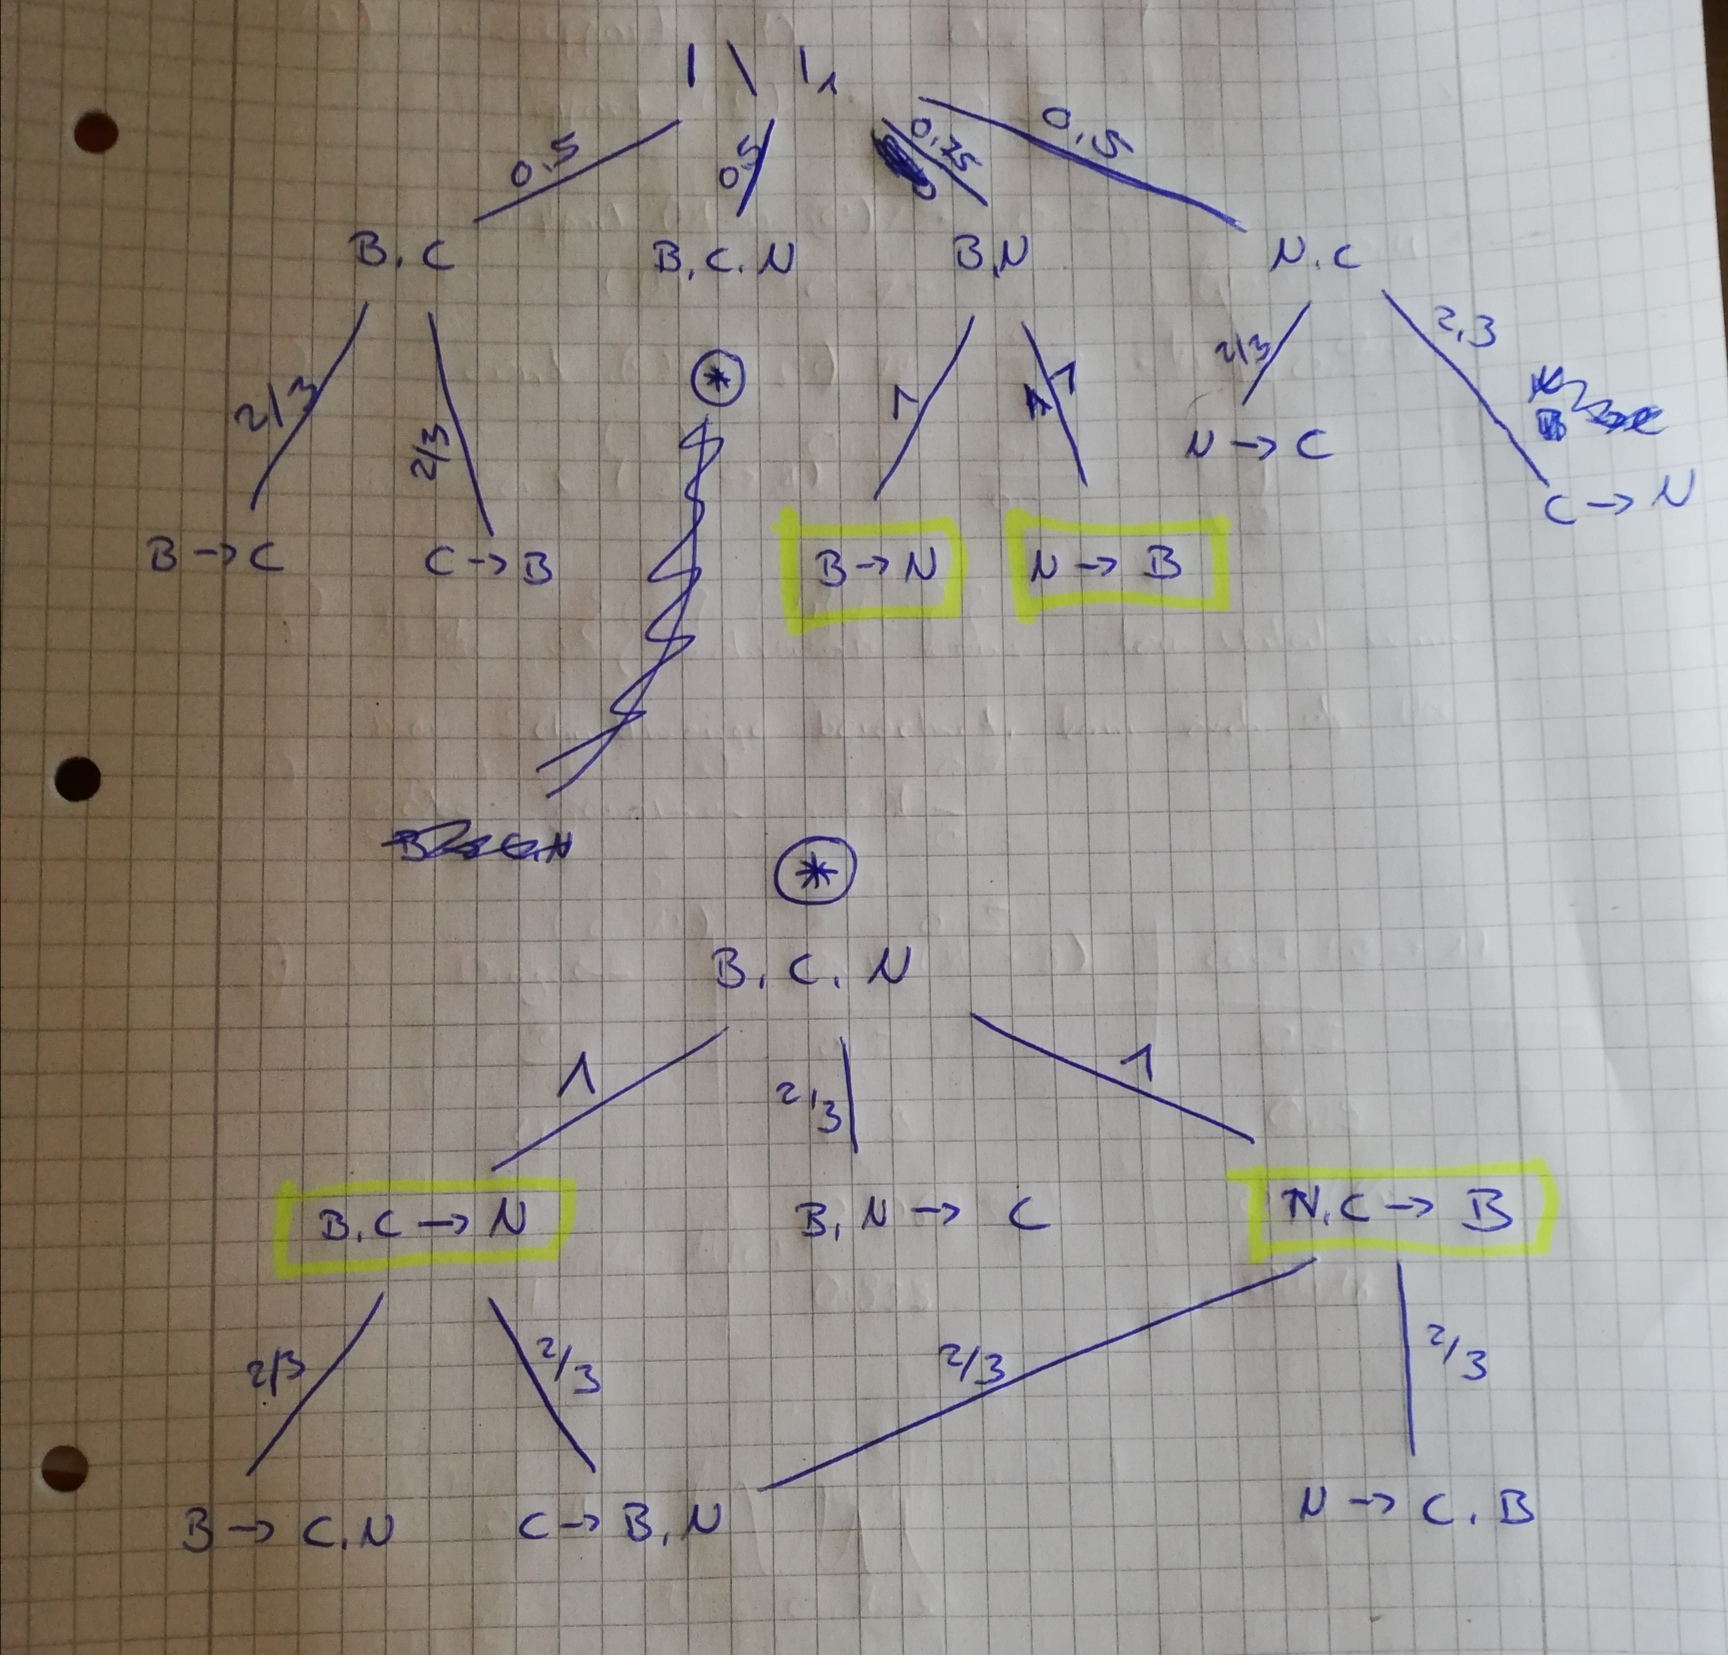 I \ I₁
0,5 0,5 0,75 0,5
B, C B, C, N B,N N, C
2/3 2/3 1 1 2/3 2,3
*
N → C
C → N
B → C C → B B → N N → B
*
B, C, N
1 2/3 1
B, C → N B, N → C N, C → B
2/3 2/3 2/3 2/3
B → C, N C → B, N N → C, B